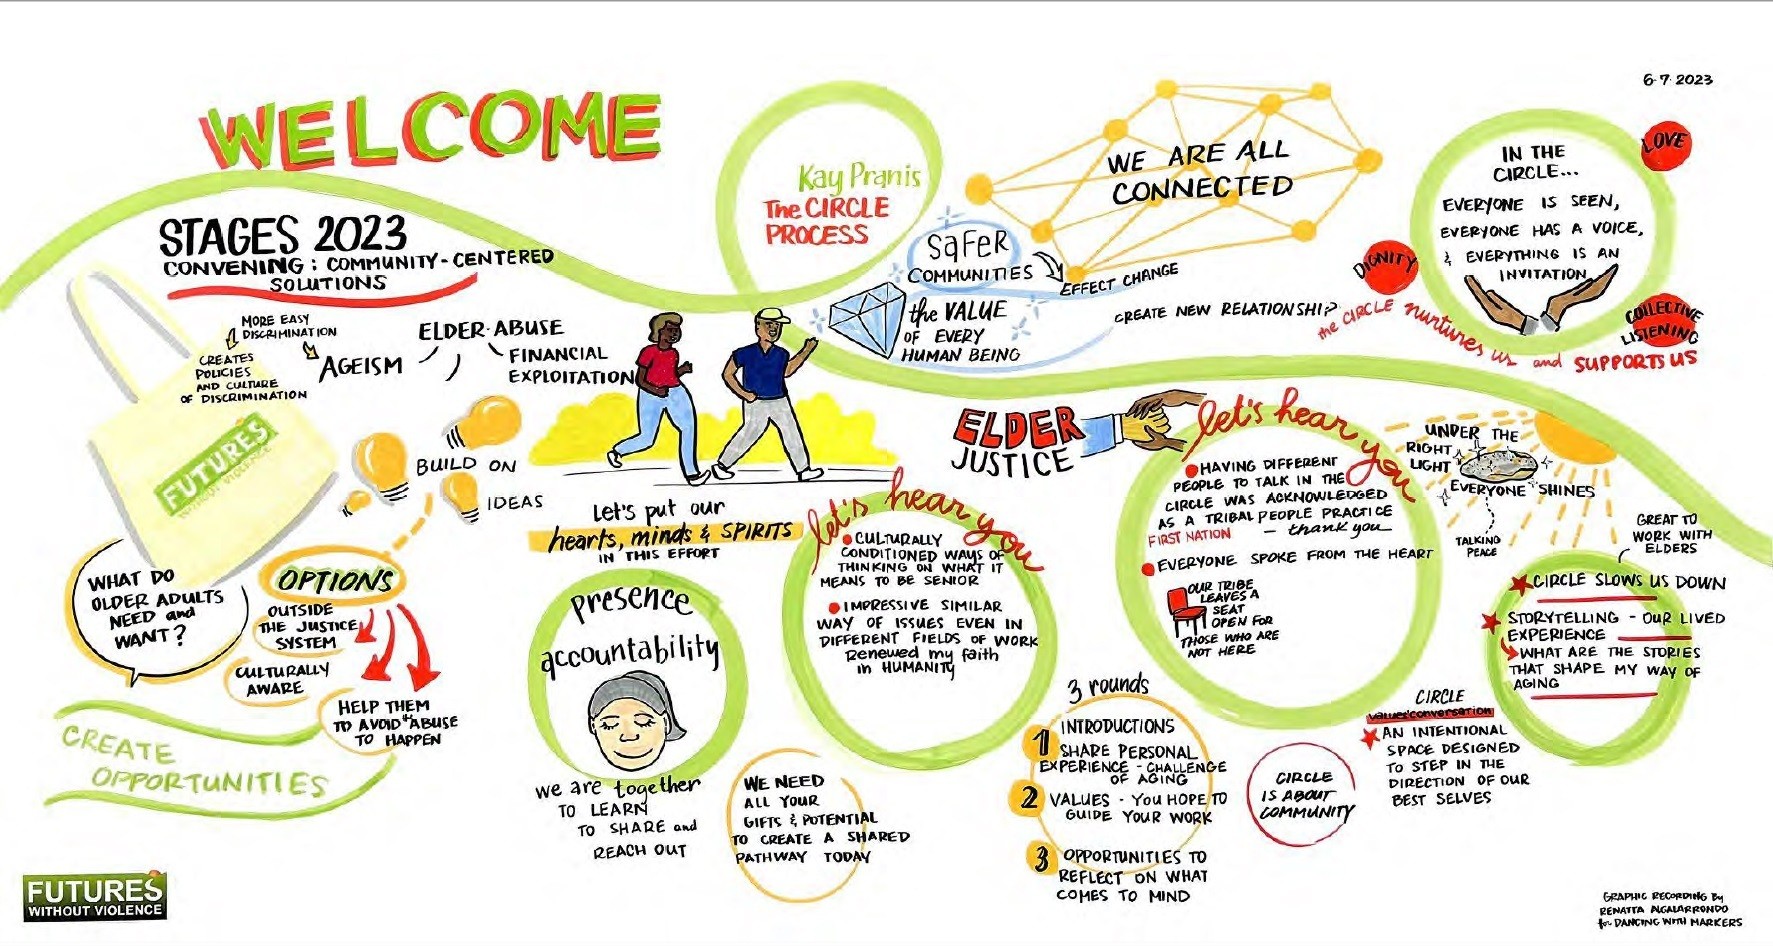 6·7·2023
WELCOME
STAGES 2023
CONVENING : COMMUNITY-CENTERED
SOLUTIONS
MORE EASY
DISCRIMINATION
CREATES
POLICIES
AND CULTURE
OF DISCRIMINATION
AGEISM
ELDER·ABUSE
FINANCIAL
EXPLOITATION
FUTURES
WITHOUT VIOLENCE
BUILD ON
IDEAS
WHAT DO
OLDER ADULTS
NEED and
WANT?
OPTIONS
OUTSIDE
THE JUSTICE
SYSTEM
CULTURALLY
AWARE
HELP THEM
TO AVOID "ABUSE
TO HAPPEN
CREATE
OPPORTUNITIES
FUTURES
WITHOUT VIOLENCE
Kay Pranis
The CIRCLE
PROCESS
SaFeR
COMMUNITIES
EFFECT CHANGE
WE ARE ALL
CONNECTED
the VALUE
OF EVERY
HUMAN BEING
CREATE NEW RELATIONSHIP
IN THE
CIRCLE...
EVERYONE IS SEEN,
EVERYONE HAS A VOICE,
& EVERYTHING IS AN
INVITATION
LOVE
DIGNITY
COLLECTIVE
LISTENING
the CIRCLE nurtures us and SUPPORTS US
Let's put our
hearts, minds & SPIRITS
IN THIS EFFORT
presence
accountability
we are together
TO LEARN
TO SHARE and
REACH OUT
WE NEED
ALL YOUR
GIFTS & POTENTIAL
TO CREATE A SHARED
PATHWAY TODAY
let's hear you
CULTURALLY
CONDITIONED WAYS OF
THINKING ON WHAT IT
MEANS TO BE SENIOR
IMPRESSIVE SIMILAR
WAY OF ISSUES EVEN IN
DIFFERENT FIELDS OF WORK
Renewed my faith
in HUMANITY
ELDER
JUSTICE
let's hear you
HAVING DIFFERENT
PEOPLE TO TALK IN THE
CIRCLE WAS ACKNOWLEDGED
AS A TRIBAL PEOPLE PRACTICE
FIRST NATION — thank you
EVERYONE SPOKE FROM THE HEART
OUR TRIBE
LEAVES A
SEAT
OPEN FOR
THOSE WHO ARE
NOT HERE
3 rounds
1 INTRODUCTIONS
SHARE PERSONAL
EXPERIENCE - CHALLENGE
OF AGING
2 VALUES - YOU HOPE TO
GUIDE YOUR WORK
3 OPPORTUNITIES TO
REFLECT ON WHAT
COMES TO MIND
CIRCLE
IS ABOUT
COMMUNITY
UNDER THE
RIGHT
LIGHT
EVERYONE SHINES
TALKING
PEACE
GREAT TO
WORK WITH
ELDERS
CIRCLE SLOWS US DOWN
STORYTELLING - OUR LIVED
EXPERIENCE
WHAT ARE THE STORIES
THAT SHAPE MY WAY OF
AGING
CIRCLE
values'conversation
AN INTENTIONAL
SPACE DESIGNED
TO STEP IN THE
DIRECTION OF OUR
BEST SELVES
GRAPHIC RECORDING By
RENATTA ALGALARRONDO
for DANCING WITH MARKERS